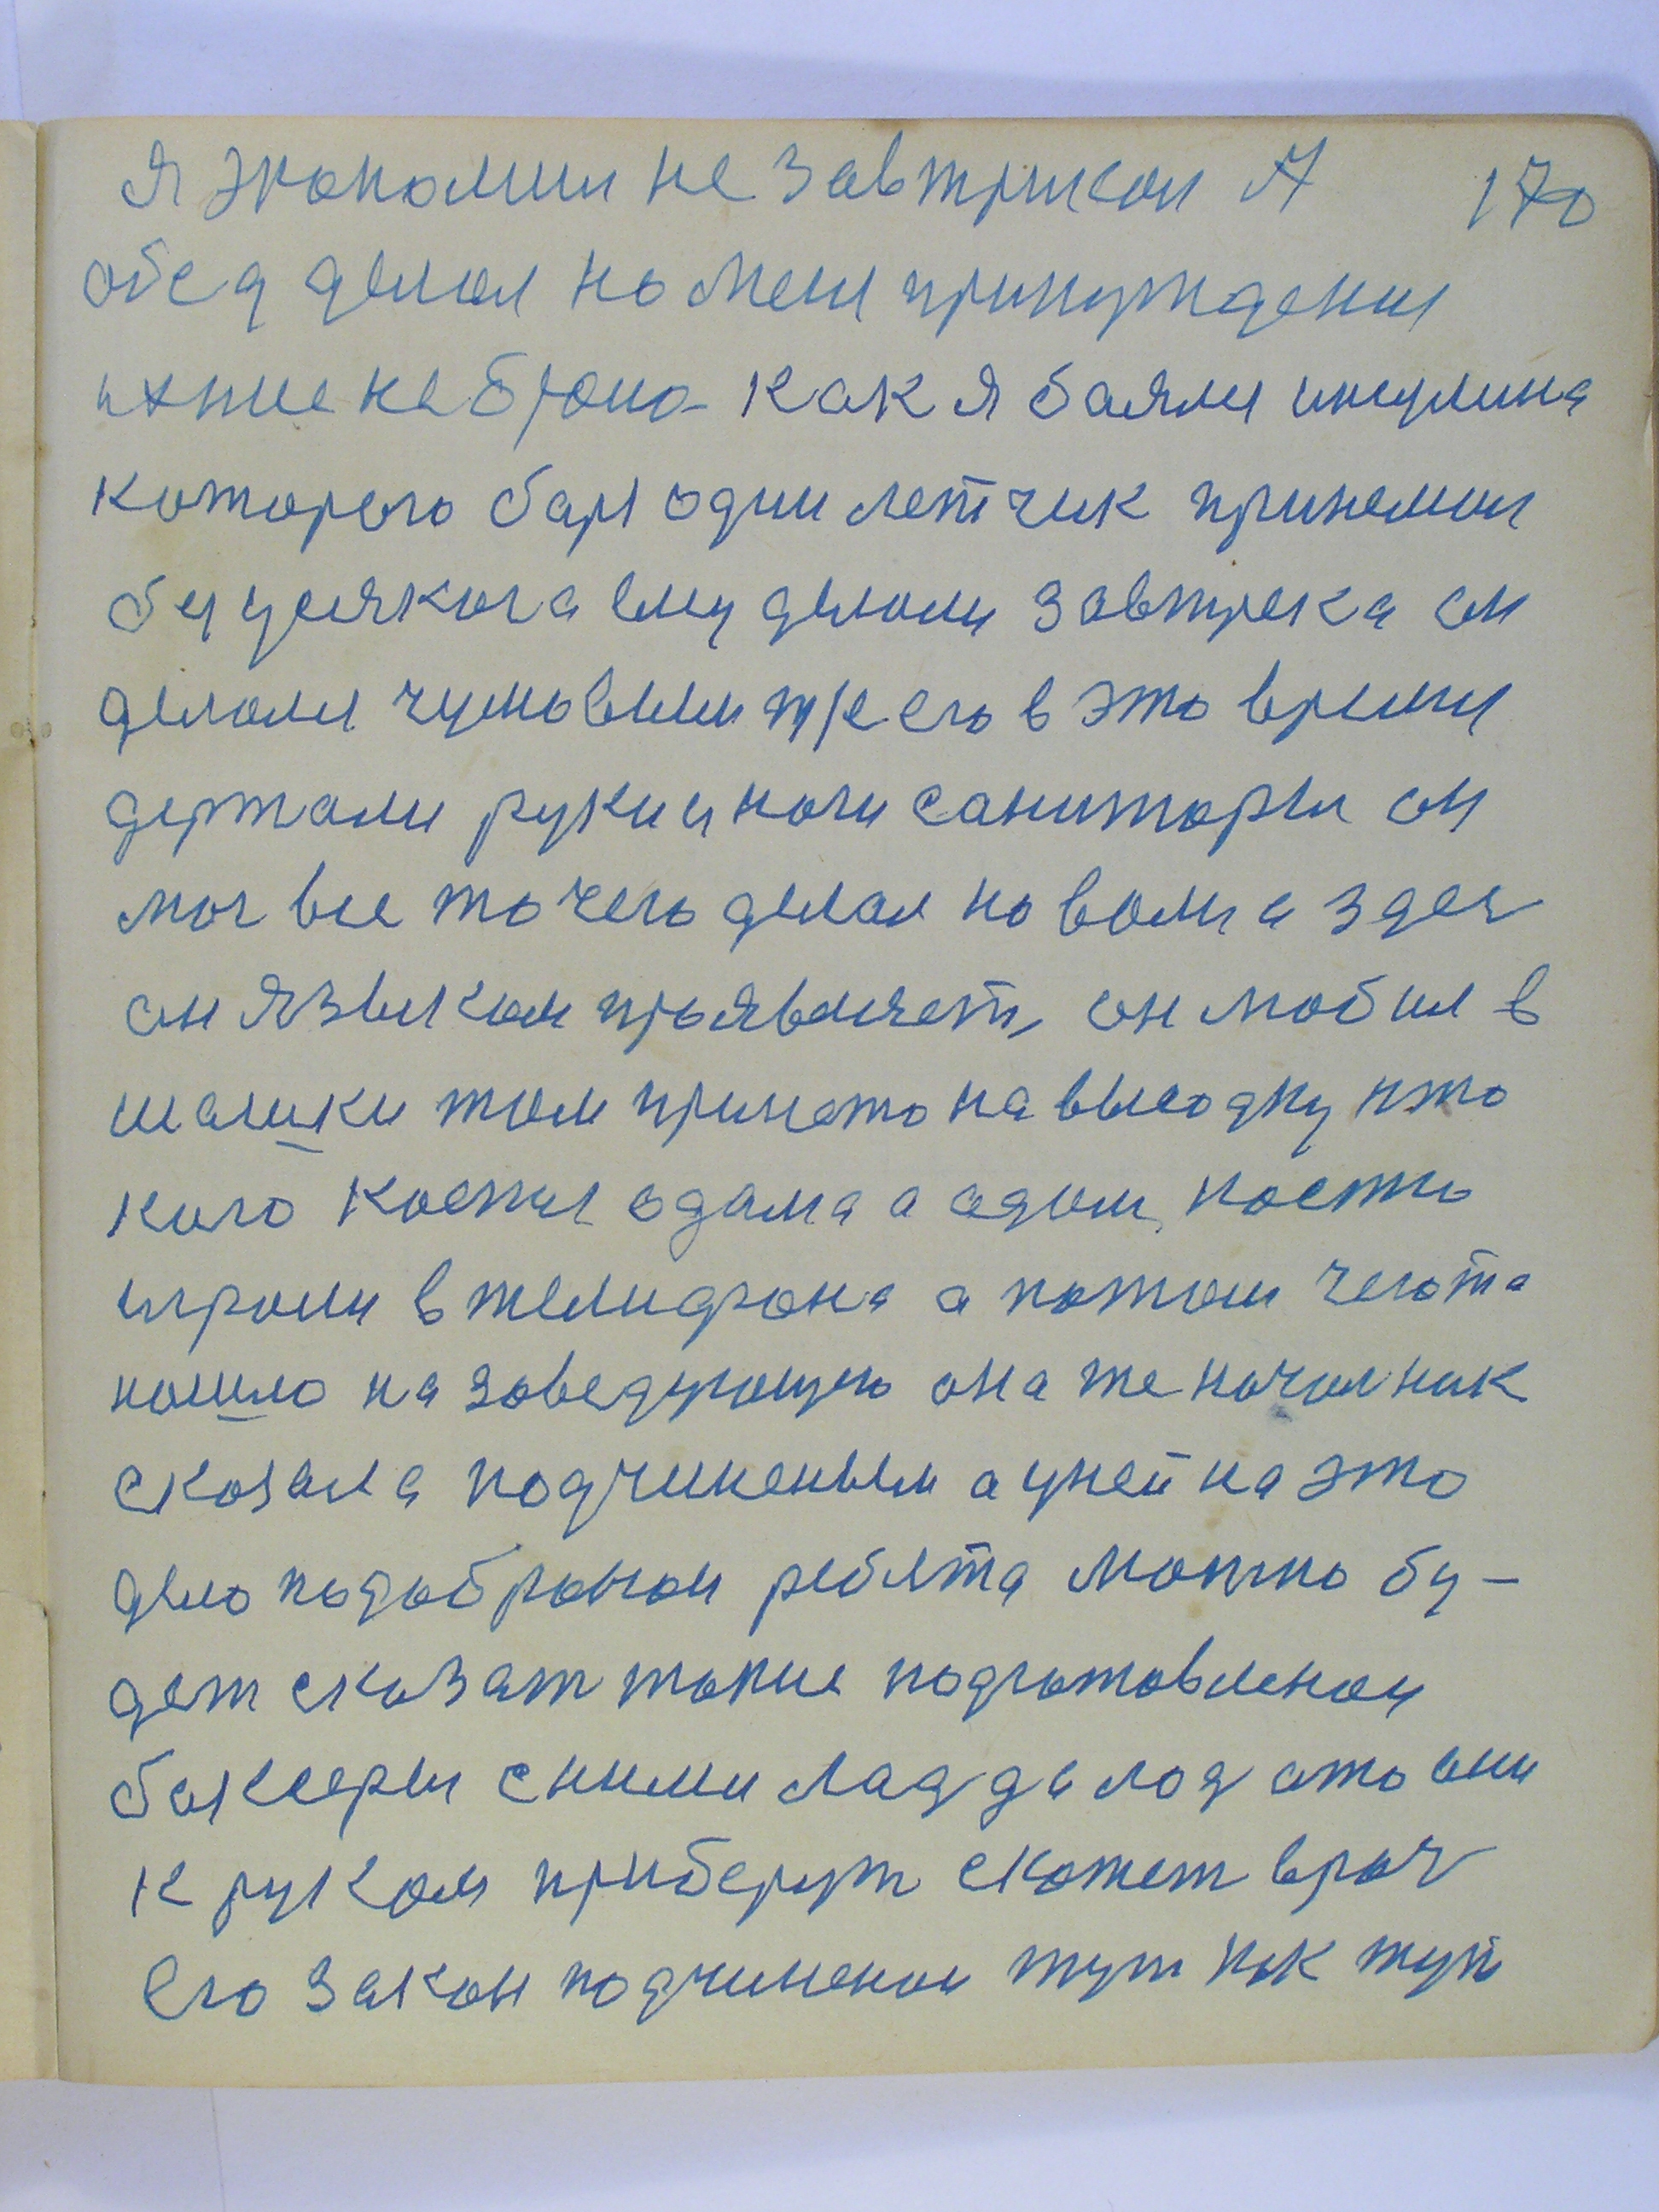 Я экономил не завтрикал А 170
обед делал но меня принуждения
ихние не брало как я баялся инсулина
которого баря один летчик принемал
безусякога ему делали завтрека он
делался чумовыим тре его в это время
держали руки и ноги санитары он
мог все то чего делал на воли а здес
он языком проявляет, он любил в
шашки там принето на высодку кто
кого коснял одама а адам, просто
играли в телифона а потом чегота
нашло на заведующую она же началник
сказала подчиненым а уней на это
дело подобраном ребята можно бу-
дет сказат такие подготовленои
баксеры с ними лад да лад ато они
к рукам приберут скажет врач
его закон подчиненои тут как тут